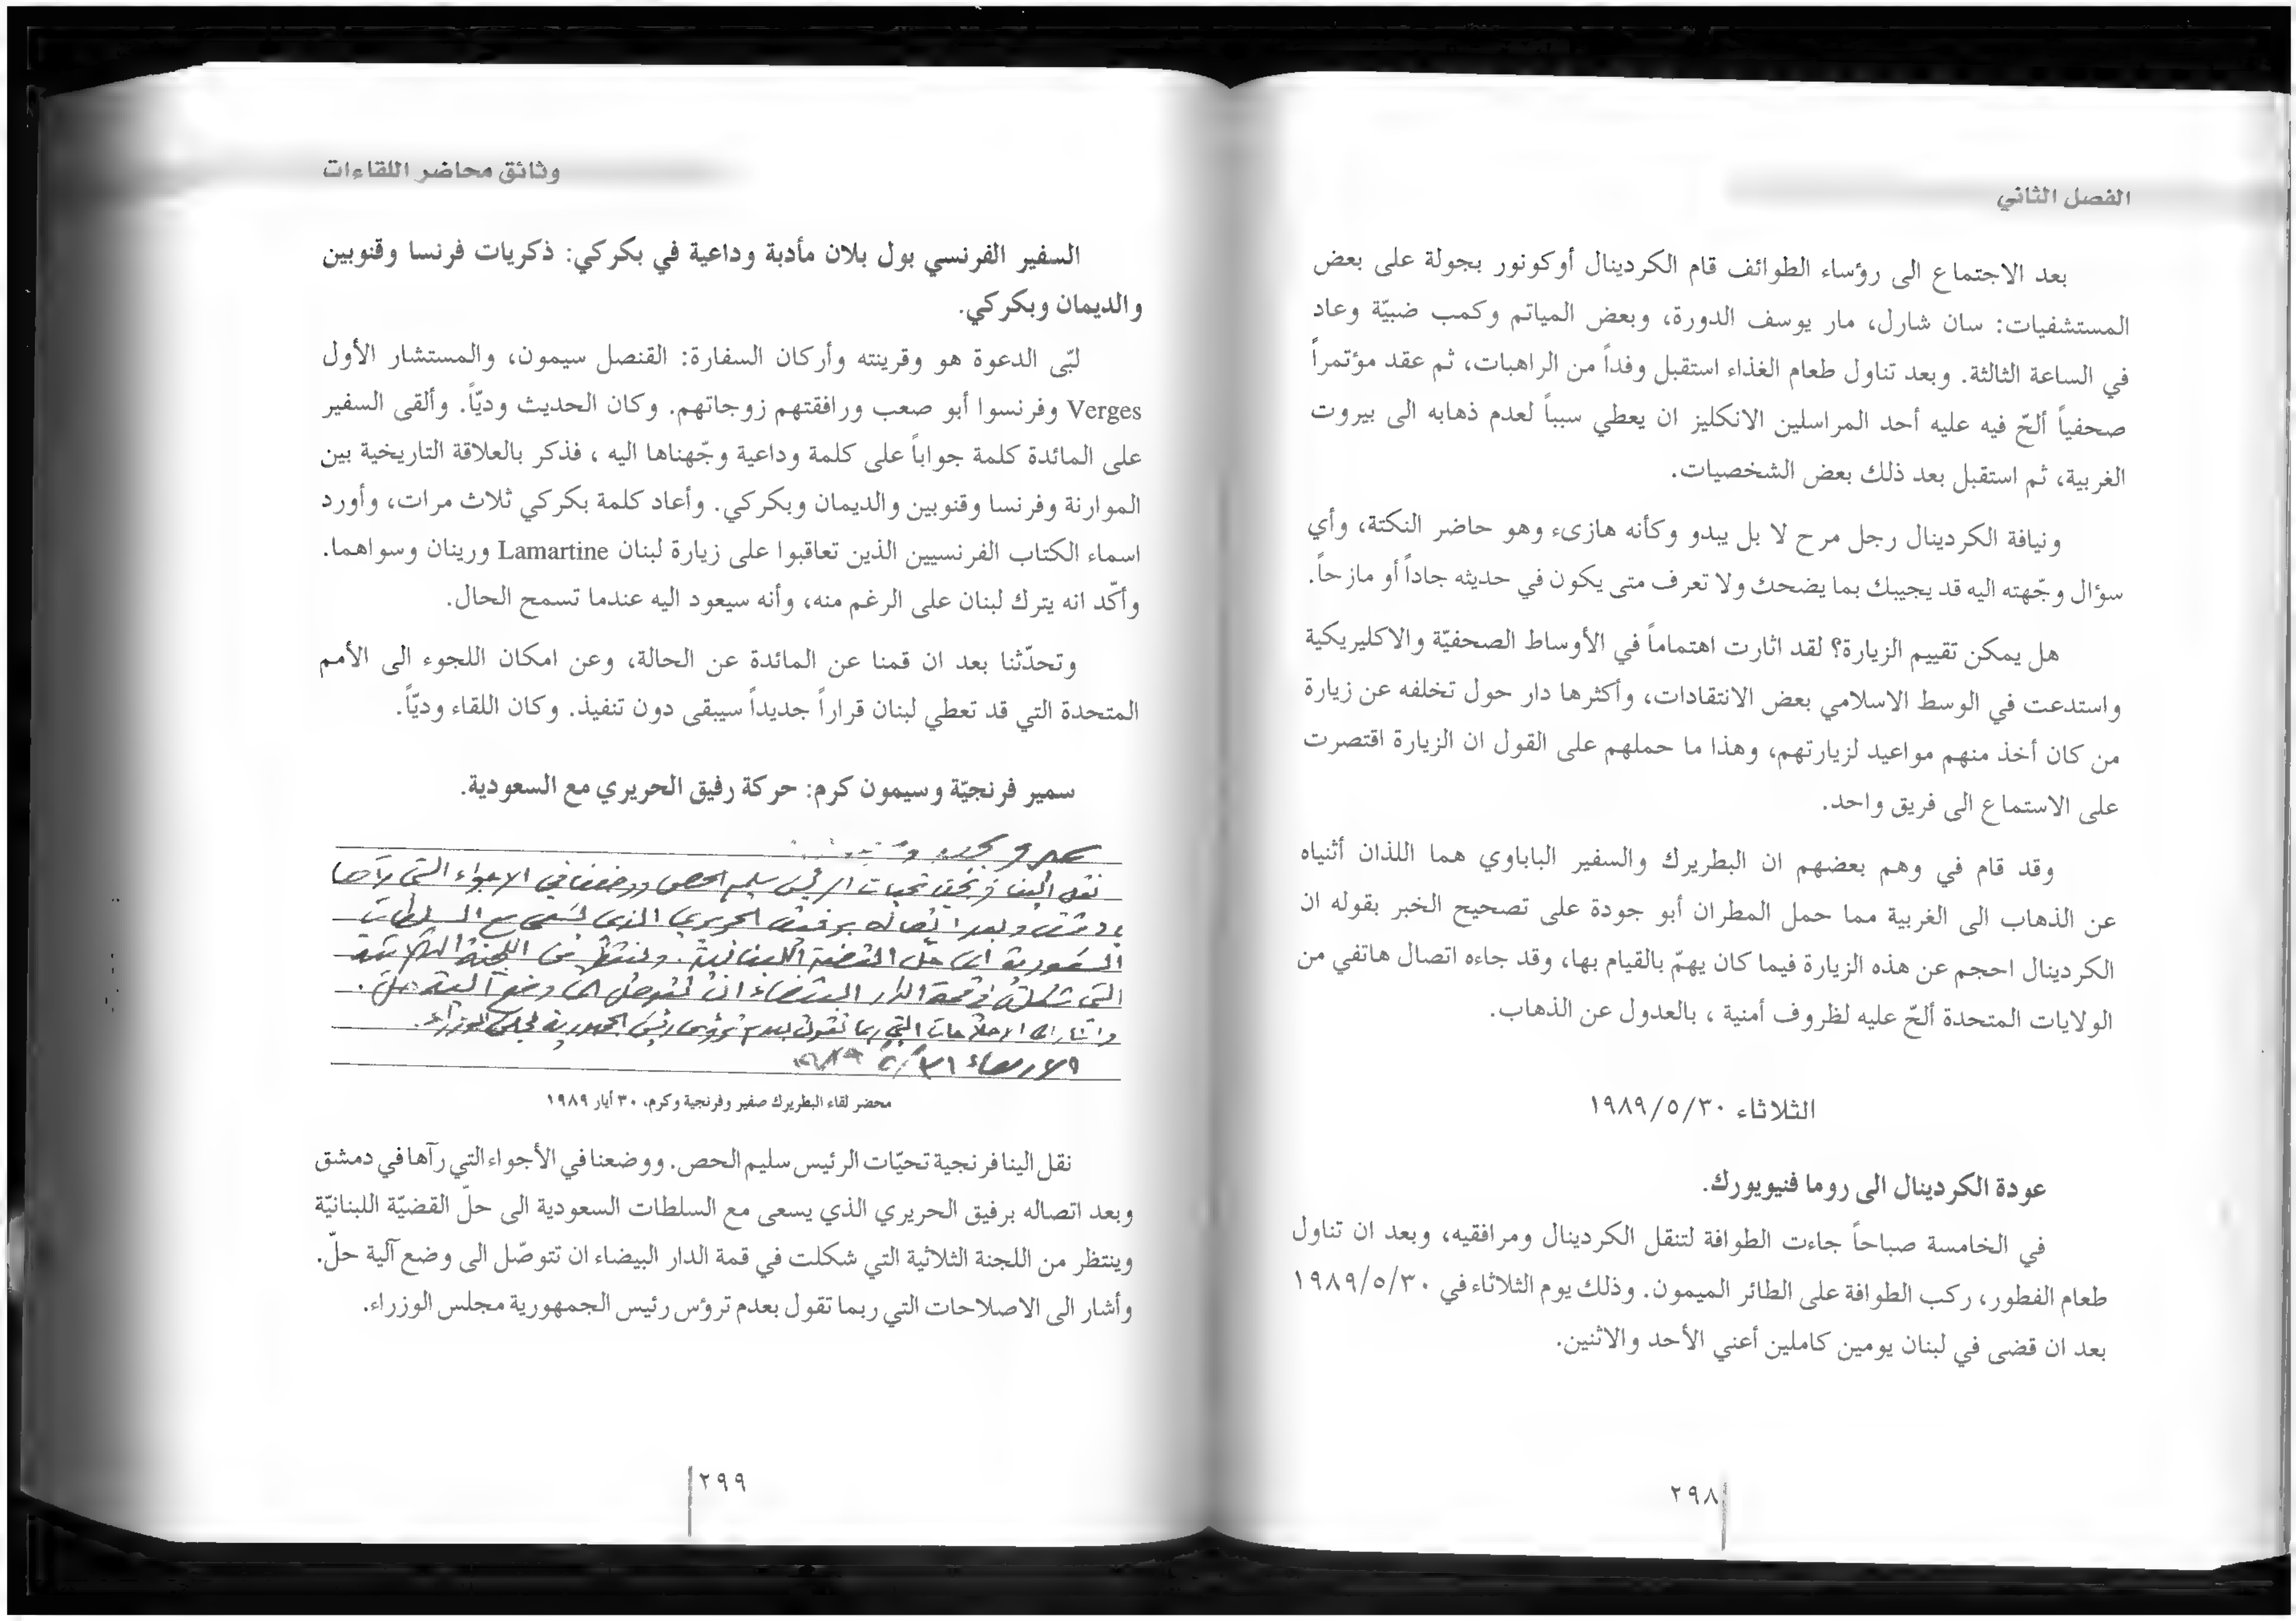 الفصل الثاني
بعد الاجتماع الى رؤساء الطوائف قام الكردينال أوكونور بجولة على بعض
المستشفيات: سان شارل، مار يوسف الدورة، وبعض المياتم وكمب ضبيّة وعاد
في الساعة الثالثة. وبعد تناول طعام الغذاء استقبل وفداً من الراهبات، ثم عقد مؤتمراً
صحفياً ألحّ فيه عليه أحد المراسلين الانكليز ان يعطي سبباً لعدم ذهابه الى بيروت
الغربية، ثم استقبل بعد ذلك بعض الشخصيات.
ونيافة الكردينال رجل مرح لا بل يبدو وكأنه هازىء وهو حاضر النكتة، وأي
سؤال وجّهته اليه قد يجيبك بما يضحك ولا تعرف متى يكون في حديثه جاداً أو مازحاً.
هل يمكن تقييم الزيارة؟ لقد اثارت اهتماماً في الأوساط الصحفيّة والاكليريكية
واستدعت في الوسط الاسلامي بعض الانتقادات، وأكثرها دار حول تخلفه عن زيارة
من كان أخذ منهم مواعيد لزيارتهم، وهذا ما حملهم على القول ان الزيارة اقتصرت
على الاستماع الى فريق واحد.
وقد قام في وهم بعضهم ان البطريرك والسفير الباباوي هما اللذان أثنياه
عن الذهاب الى الغربية مما حمل المطران أبو جودة على تصحيح الخبر بقوله ان
الكردينال احجم عن هذه الزيارة فيما كان يهمّ بالقيام بها، وقد جاءه اتصال هاتفي من
الولايات المتحدة ألحّ عليه لظروف أمنية ، بالعدول عن الذهاب.
الثلاثاء ١٩٨٩/٥/٣٠
عودة الكردينال الى روما فنيويورك.
في الخامسة صباحاً جاءت الطوافة لتنقل الكردينال ومرافقيه، وبعد ان تناول
طعام الفطور، ركب الطوافة على الطائر الميمون. وذلك يوم الثلاثاء في ١٩٨٩/٥/٣٠
بعد ان قضى في لبنان يومين كاملين أعني الأحد والاثنين.
٢٩٨
وثائق محاضر اللقاءات
السفير الفرنسي بول بلان مأدبة وداعية في بكركي: ذكريات فرنسا وقنوبين
والديمان وبكركي.
لبّى الدعوة هو وقرينته وأركان السفارة: القنصل سيمون، والمستشار الأول
Verges وفرنسوا أبو صعب ورافقتهم زوجاتهم. وكان الحديث وديّاً. وألقى السفير
على المائدة كلمة جواباً على كلمة وداعية وجّهناها اليه ، فذكر بالعلاقة التاريخية بين
الموارنة وفرنسا وقنوبين والديمان وبكركي. وأعاد كلمة بكركي ثلاث مرات، وأورد
اسماء الكتاب الفرنسيين الذين تعاقبوا على زيارة لبنان Lamartine ورينان وسواهما.
وأكّد انه يترك لبنان على الرغم منه، وأنه سيعود اليه عندما تسمح الحال.
وتحدّثنا بعد ان قمنا عن المائدة عن الحالة، وعن امكان اللجوء الى الأمم
المتحدة التي قد تعطي لبنان قراراً جديداً سيبقى دون تنفيذ. وكان اللقاء وديّاً.
سمير فرنجيّة وسيمون كرم: حركة رفيق الحريري مع السعودية.
نقل الينا فرنجية تحيات الرئيس سليم الحص ووضعنا في الاجواء التي رآها
بدمشق وبعد اتصاله برفيق الحريري الذي يسعى مع السلطات
السعودية الى حل القضية اللبنانية. وينتظر من اللجنة الثلاثية
التي شكلت في قمة الدار البيضاء ان تتوصل الى وضع آلية حل.
واشار الى الاصلاحات التي ربما تقول بعدم ترؤس رئيس الجمهورية مجلس الوزراء.
الاربعاء ٣١/٥/٨٩
محضر لقاء البطريرك صفير وفرنجية وكرم، ٣٠ أيار ١٩٨٩
نقل الينا فرنجية تحيّات الرئيس سليم الحص. ووضعنا في الأجواء التي رآها في دمشق
وبعد اتصاله برفيق الحريري الذي يسعى مع السلطات السعودية الى حلّ القضيّة اللبنانيّة
وينتظر من اللجنة الثلاثية التي شكلت في قمة الدار البيضاء ان تتوصّل الى وضع آلية حلّ.
وأشار الى الاصلاحات التي ربما تقول بعدم ترؤس رئيس الجمهورية مجلس الوزراء.
٢٩٩